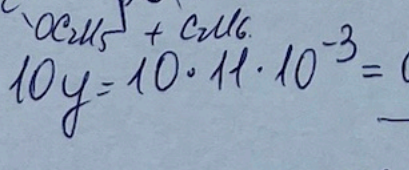 OC₂H₅ + C₂H₆.
10y = 10 · 11 · 10⁻³ =